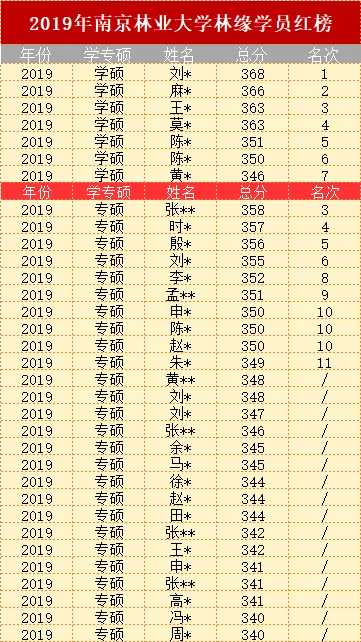 2019年南京林业大学林缘学员红榜
年份 学专硕 姓名 总分 名次
2019 学硕 刘* 368 1
2019 学硕 麻* 366 2
2019 学硕 王* 363 3
2019 学硕 莫* 363 4
2019 学硕 陈* 351 5
2019 学硕 陈* 350 6
2019 学硕 黄* 346 7
年份 学专硕 姓名 总分 名次
2019 专硕 张** 358 3
2019 专硕 时* 357 4
2019 专硕 殷* 356 5
2019 专硕 刘* 355 6
2019 专硕 李* 352 8
2019 专硕 孟** 351 9
2019 专硕 申* 350 10
2019 专硕 陈* 350 10
2019 专硕 赵* 350 10
2019 专硕 朱* 349 11
2019 专硕 黄** 348 /
2019 专硕 刘* 348 /
2019 专硕 刘* 347 /
2019 专硕 张** 346 /
2019 专硕 余* 345 /
2019 专硕 马* 345 /
2019 专硕 徐* 344 /
2019 专硕 赵* 344 /
2019 专硕 田* 344 /
2019 专硕 张** 342 /
2019 专硕 王* 342 /
2019 专硕 申* 341 /
2019 专硕 张** 341 /
2019 专硕 高* 341 /
2019 专硕 冯* 340 /
2019 专硕 周* 340 /